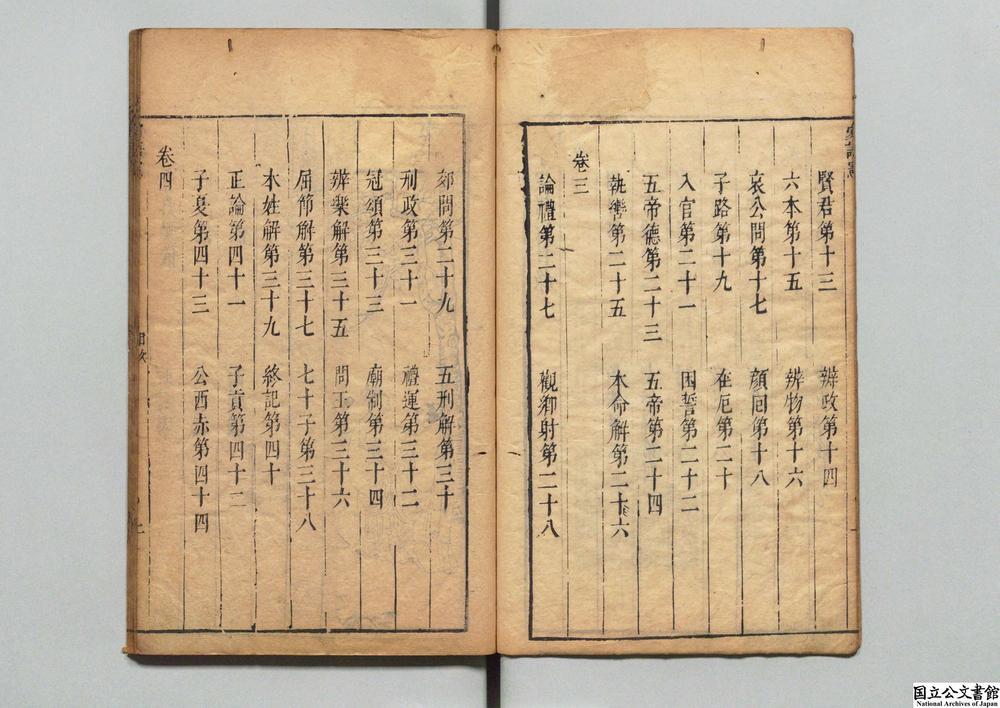 賢君第十三　辨政第十四
六本第十五　辨物第十六
哀公問第十七　顔回第十八
子路第十九　在厄第二十
入官第二十一　困誓第二十二
五帝德第二十三　五帝第二十四
執轡第二十五　本命解第二十六
卷三
論禮第二十七　觀鄉射第二十八
郊問第二十九　五刑解第三十
刑政第三十一　禮運第三十二
冠頌第三十三　廟制第三十四
辨樂解第三十五　問玉第三十六
屈節解第三十七　七十子第三十八
本姓解第三十九　終記第四十
正論第四十一　子貢第四十二
子夏第四十三　公西赤第四十四
卷四
目次
国立公文書館
National Archives of Japan